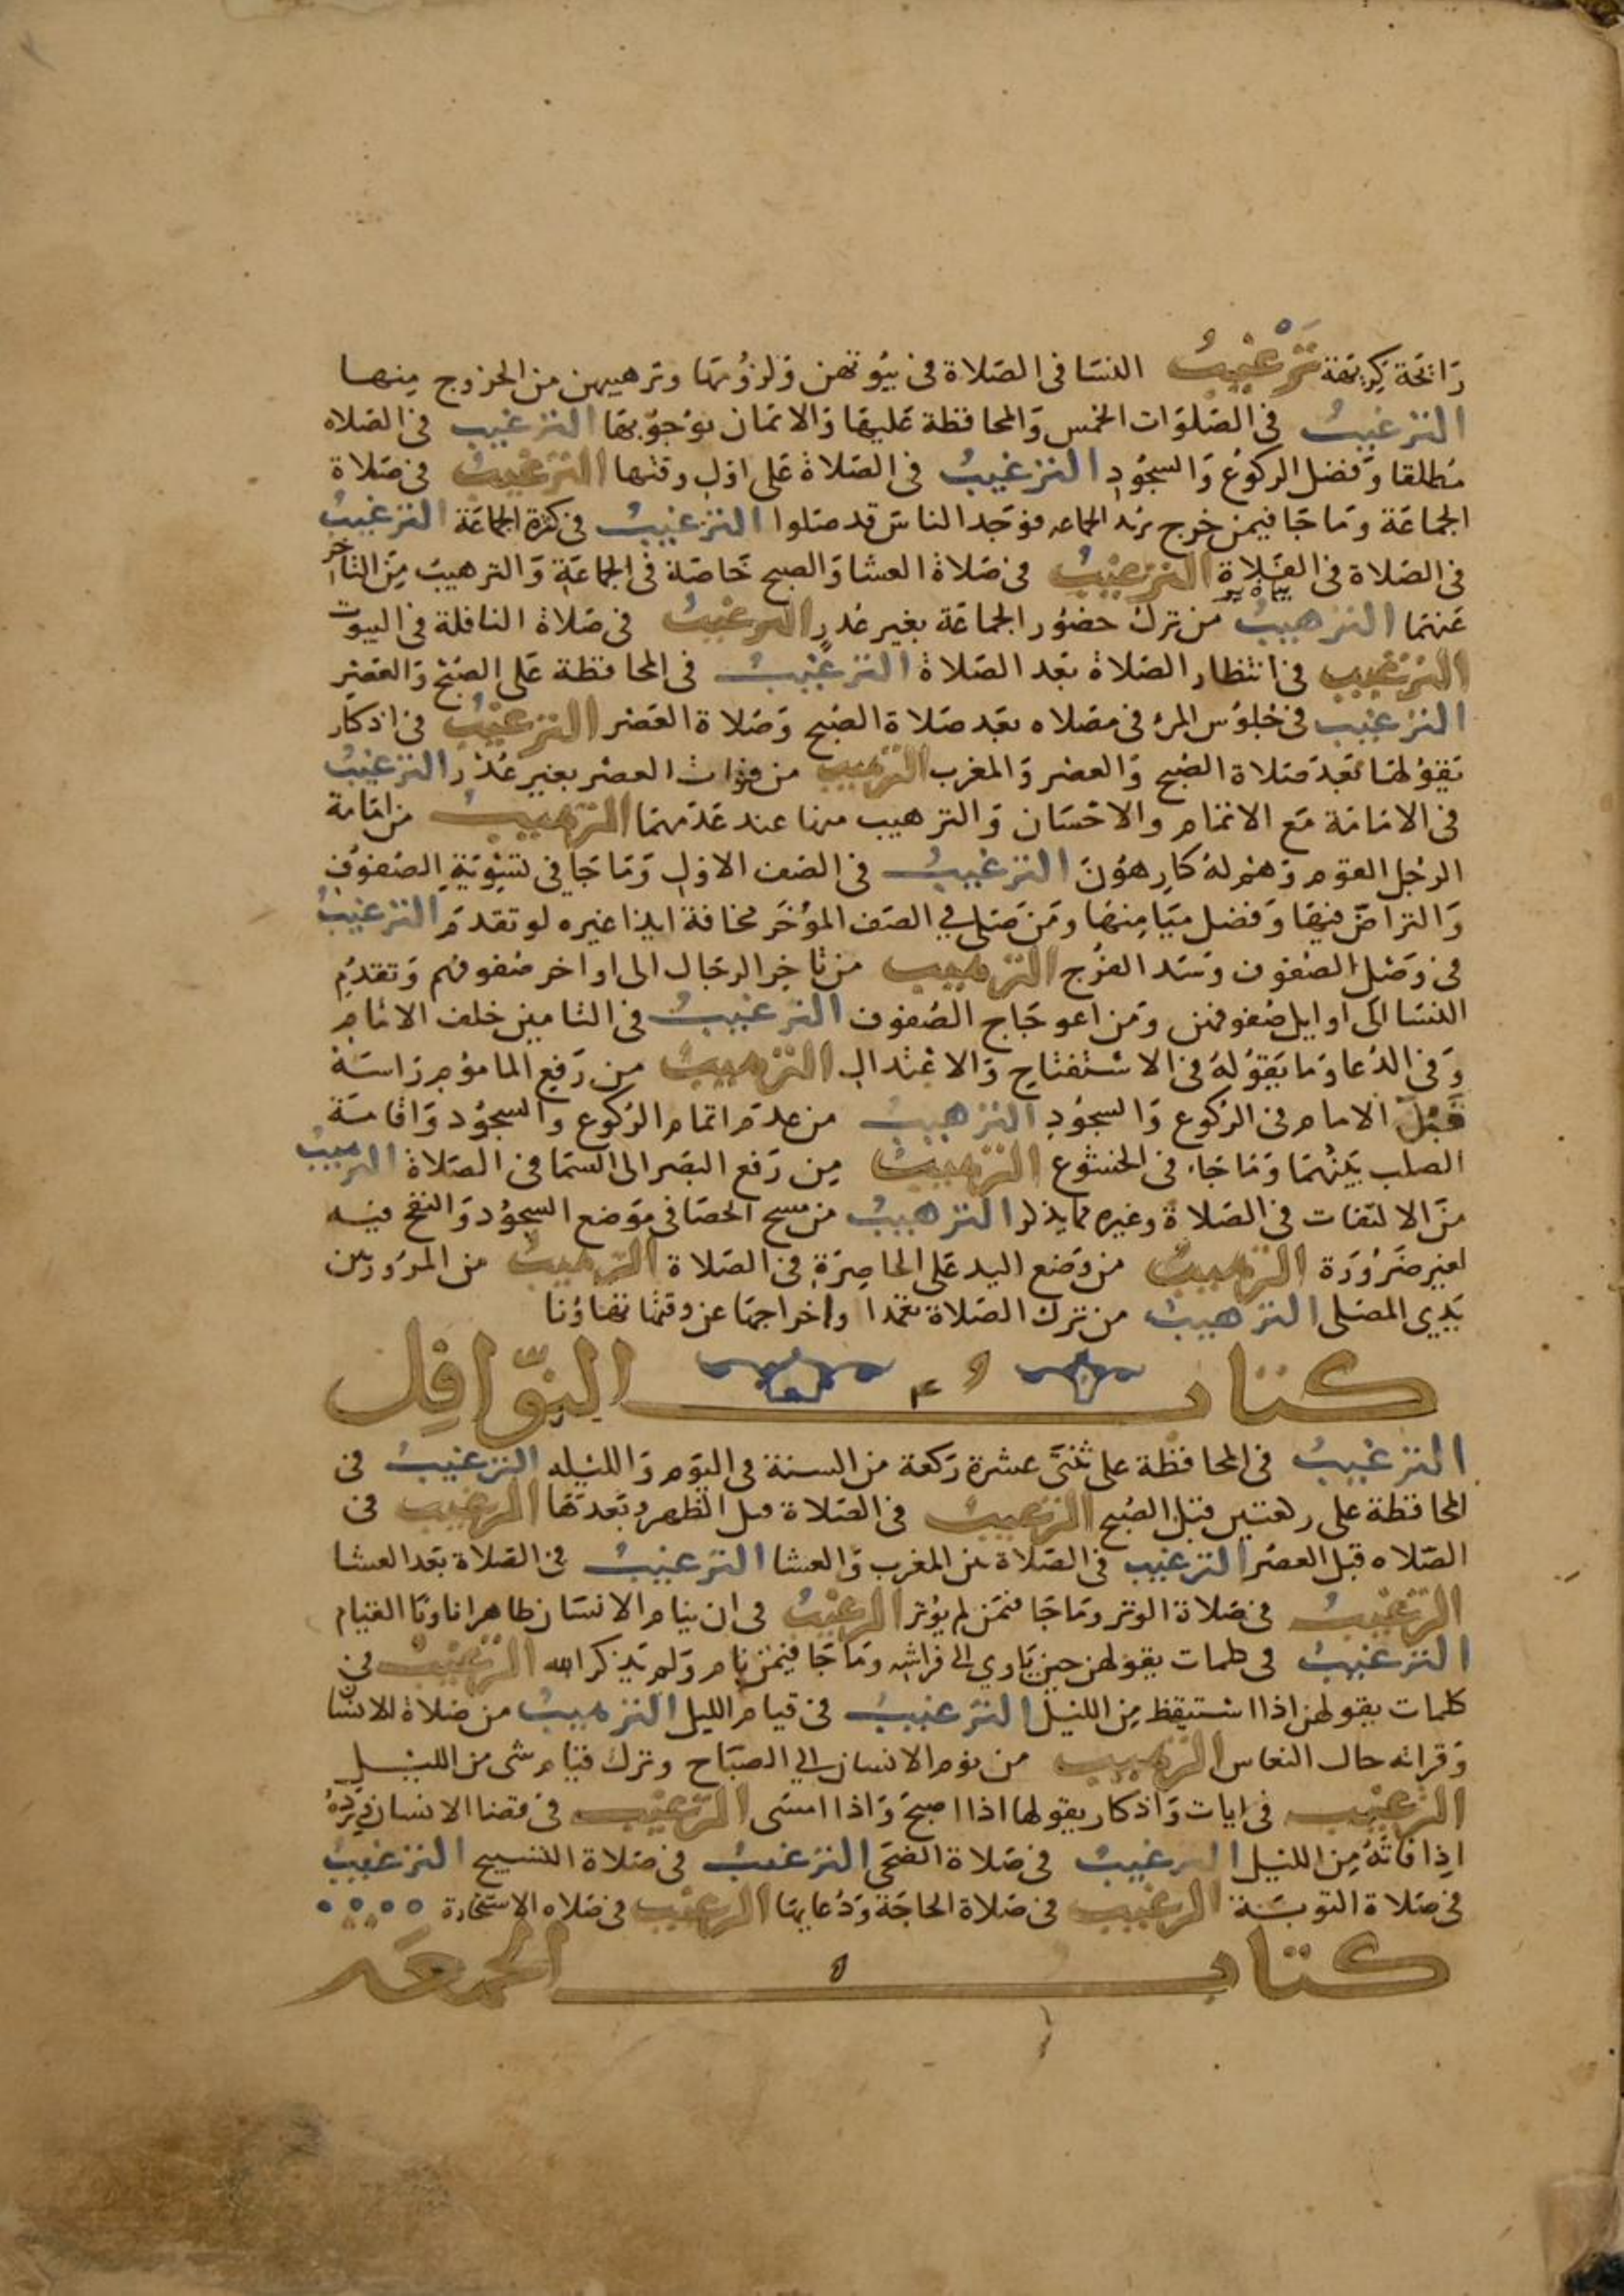 رَائحَة كِريهَة تَرْغيبُ النسَا في الصَلاة في بيُوتهن وَلزُومهَا وترهيبهن من الخروج مِنها
الترغيبُ في الصَلوَات الخمس وَالمحافظة عَليهَا وَالايمَان بوُجوُبهَا الترغيب في الصَلاه
مُطلقا وَفضل الركوُع وَالسجُودِ الترغيبُ في الصَلاة عَلى اوّل وقتها الترغيبُ في صَلاة
الجمَاعَة وَمَا جَا فيمن خرج يريد الجماعه فوَجَد الناسَ قد صَلوا الترغيبُ في كثرة الجمَاعَة الترغيبُ
في الصَلاة في الفَلاةِ الترغيبُ في صَلاة العشا وَالصبح خَاصَة في الجمَاعَةِ وَالترهيبُ مِنَ التاخر
عَنهمَا الترهيبُ من ترك حضوُر الجمَاعَة بغير عُذرٍ الترغيبُ في صَلاة النافلة في البيوت
الترغيب في انتظار الصَلاة بعَد الصَلاة الترغيبُ في المحافظة عَلى الصُبْح وَالعَصْرِ
الترغيب في جلوُس المرء في مصَلاه بعَد صَلاة الصُبح وَصَلاة العَصْر الترغيبُ في اذكار
يَقوُلهَا بَعَدَ صَلاة الصُبح وَالعصْر وَالمغرب الترهيب من فوَات العصْر بغير عُذْر الترغيبُ
في الامَامَة مَع الاتمَام والاحْسَان وَالترهيب منها عند عَدَمهمَا الترهيبُ من امَامَة
الرجُل القوم وَهُم لهُ كارهوُنَ الترغيبُ في الصَف الاوّل وَمَا جَا في تسْوِيَةِ الصُفوُفِ
وَالتراصّ فيهَا وَفضل مَيَامِنهَا وَمَن صَلى في الصَف المؤخَر مخافة ايذا غيره لو تقدمَ الترغيبُ
في وَصْلِ الصفوُف وَسَد الفرُج الترهيب من تاخِر الرجَال الى اواخر صفوفهم وَتقدُمِ
النسَا الى اوايل صُفوفهن وَمن اعوجَاج الصُفوف الترغيبُ في التامين خلف الامَام
وَفي الدُعا وَمَا يَقوُلهُ في الاسْتفتاح وَالاعْتدال الترهيبُ من رَفع المامُوم رَاسَهُ
قَبْلَ الامام في الرُكوع وَالسجُودِ الترهيبُ من عدم اتمام الرُكوع والسجُود وَاقامَة
الصلب بَينَهُمَا وَمَا جَاء في الخشوُع الترهيبُ مِن رَفع البَصَر الى السمَا في الصَلاة الترهيبُ
منَ الالتفات في الصَلاة وغيره مما يذكر الترهيبُ من مسح الحصَا في موَضع السجوُد وَالنفخ فيه
لغير ضَرُورَة الترهيبُ من وَضع اليد عَلى الخاصِرَةِ في الصَلاة الترهيبُ من المرُور بين
يَدي المصَلى الترهيبُ من ترك الصَلاة تعمدا واخراجهَا عن وقتهَا تهاوُنا
كتابُ النوّافِل
الترغيبُ في المحافظة على ثنتَي عشرة رَكعة من السنة في اليَوم وَالليله الترغيبُ في
المحافظة على ركعتين قبَل الصُبح الترغيبُ في الصَلاة قبل الظهر وبَعدهَا الترغيب في
الصَلاه قبل العصْر الترغيب في الصَلاة بين المغرب وَالعشا الترغيبُ في الصَلاة بعَد العشا
الترغيبُ في صَلاة الوتر وَمَا جَا فيمَن لم يوُتر الترغيبُ في ان ينام الانسَان طاهرا ناويَا القيام
الترغيبُ في كلمات يقولهن حين يَاوي الى فراشه وَمَا جَا فيمَن نام وَلم يَذكر الله الترغيبُ في
كلمات يقولهن اذا استيقظ مِن الليْل الترغيبُ في قيام الليل الترهيبُ من صَلاة الانسَان
وَقراته حال النعاس الترهيب من نوم الانسان الى الصبَاح وترك قيَام شي من الليْل
الترغيب في ايات وَاذكار يقولها اذا اصبحَ وَاذا امسَى الترغيب في قضا الانسان وِرْدهُ
اذا فاتَهُ مِن الليْل الترغيبُ في صَلاة الضحَى الترغيبُ في صَلاة التسبيح الترغيبُ
في صَلاة التوبَة الترغيب في صَلاة الحاجَة وَدُعَايهَا الترغيب في صَلاه الاستخارة
كتابُ الجمعَه